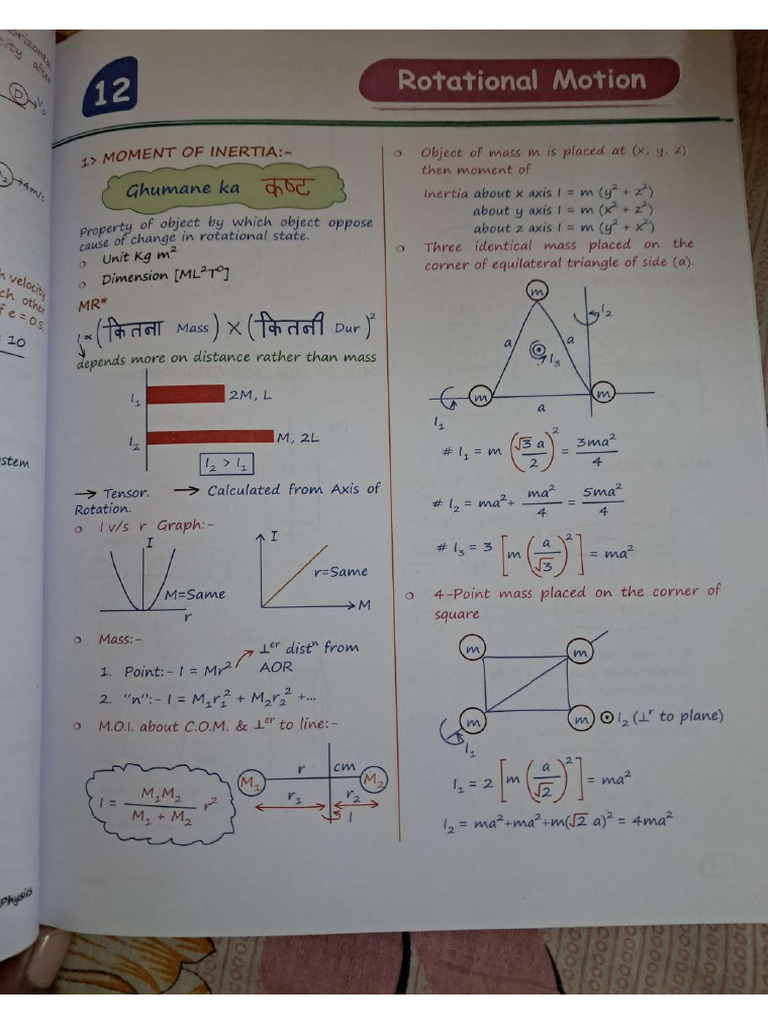 12
Rotational Motion
1> MOMENT OF INERTIA:-
Ghumane ka कष्ट
Property of object by which object oppose
cause of change in rotational state.
Unit Kg m²
Dimension [ML²T⁰]
MR*
I ∝ (कितना Mass) × (कितनी Dur)²
depends more on distance rather than mass
I₁ 2M, L
I₂ M, 2L
I₂ > I₁
→ Tensor. → Calculated from Axis of
Rotation.
I v/s r Graph:-
I
M=Same
r
I
r=Same
M
Mass:-
⊥ᵉʳ distⁿ from
AOR
1. Point:- I = Mr²
2. "n":- I = M₁r₁² + M₂r₂² +...
M.O.I. about C.O.M. & ⊥ᵉʳ to line:-
I = M₁M₂ / (M₁ + M₂) r²
r cm
M₁ M₂
r₁ r₂
I
Object of mass m is placed at (x, y, z)
then moment of
Inertia about x axis I = m (y² + z²)
about y axis I = m (x² + z²)
about z axis I = m (y² + x²)
Three identical mass placed on the
corner of equilateral triangle of side (a).
m
I₂
a a
I₃
m m
a
I₁
# I₁ = m (√3 a / 2)² = 3ma² / 4
# I₂ = ma² + ma² / 4 = 5ma² / 4
# I₃ = 3 [m (a / √3)²] = ma²
4-Point mass placed on the corner of
square
m m
m m I₂ (⊥ʳ to plane)
I₁
I₁ = 2 [m (a / √2)²] = ma²
I₂ = ma²+ma²+m(√2 a)² = 4ma²
city after
D V₀
4m/s
velocity
ch other
f e = 0.5.
10
stem
Physics